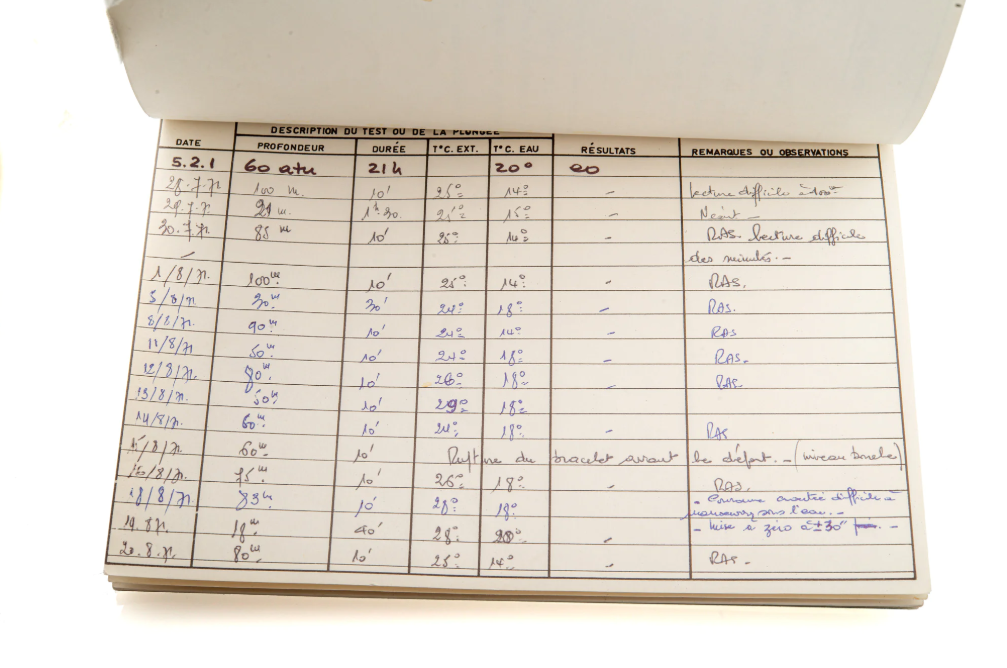 DESCRIPTION DU TEST OU DE LA PLONGÉE
DATE PROFONDEUR DURÉE T°C. EXT. T°C. EAU RÉSULTATS REMARQUES OU OBSERVATIONS
5.2.1 60 atu 21h 20° eo
28.7.71 100 m. 10' 25° 14° - Lecture difficile à 100m
29.7.71 21 m. 1h.30. 25° 15° - Néant -
30.7.71 85 m 10' 25° 14° - RAS. Lecture difficile
des minutes. -
1/8/71. 100m. 10' 25° 14° - RAS.
5/8/71 30m 30' 24° 18° - RAS.
8/8/71. 90m 10' 24° 14° - RAS
11/8/71 50m 10' 24° 18° - RAS.
12/8/71. 80m. 10' 26° 18° - RAS.
13/8/71. 50m. 10' 29° 18°
14/8/71. 60m. 10' 24° 18° - RAS
15/8/71. 60m. 10' Rupture du bracelet avant le départ. - (niveau boucle)
16/8/71. 75m. 10' 26° 18° - RAS.
18/8/71. 33m. 10' 28° 18° - Couronne crantée difficile à
sous l'eau. -
19.8.71. 18m. 40' 28° 20° - - Mise à zéro à ±30" -
20.8.71. 80m. 10' 25° 14° - RAS.